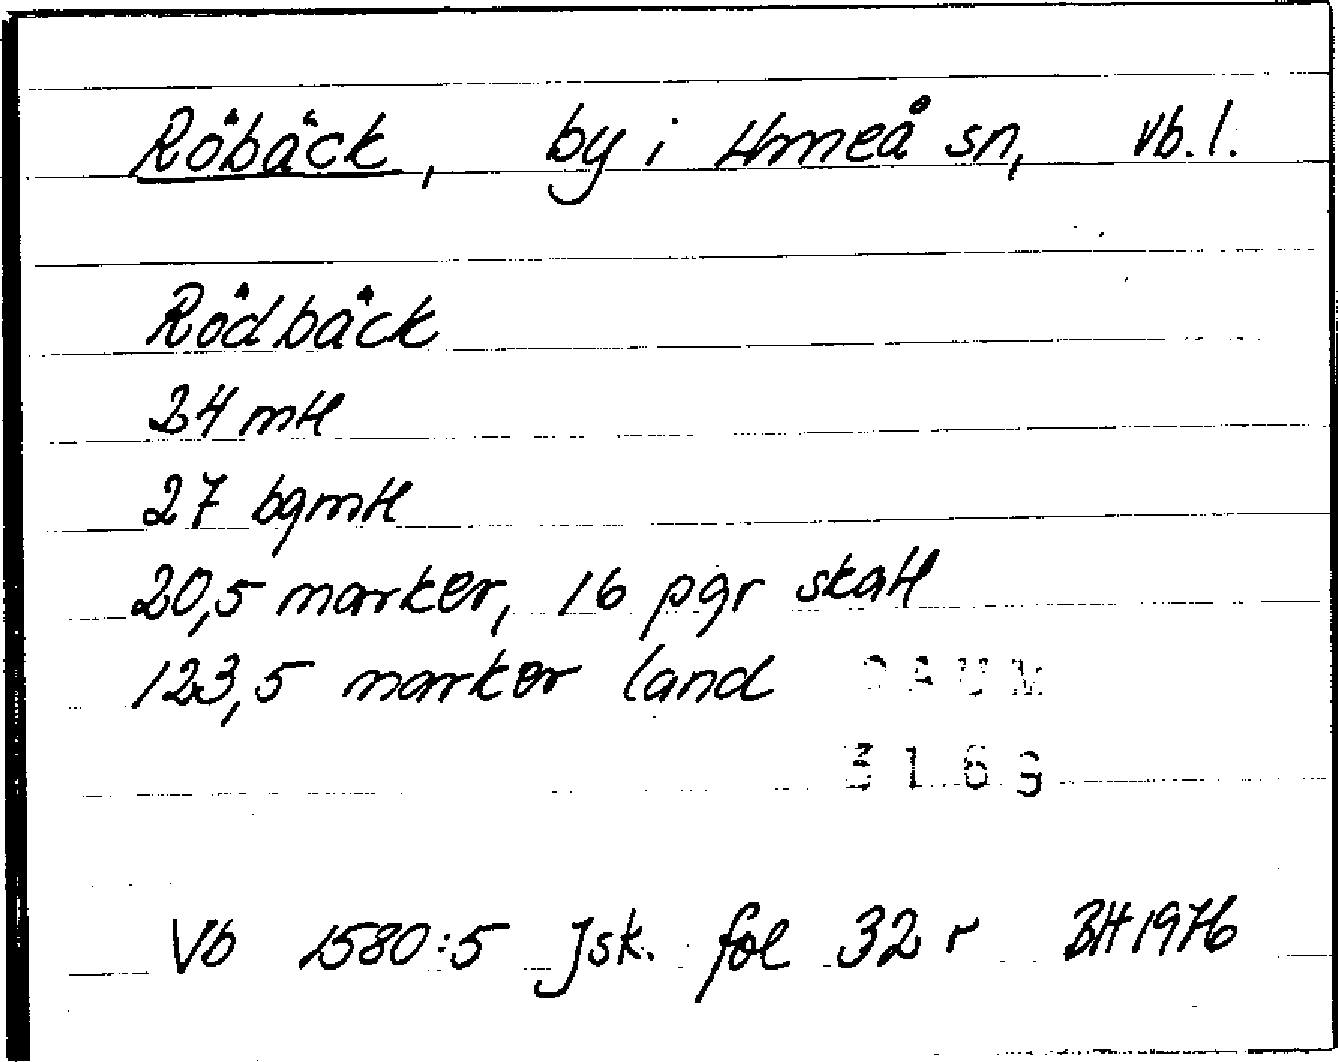 Röbäck, by i Umeå sn, Vb. l.
Rödbäck
24 mtl
27 bgmtl
20,5 marker, 16 pgr skatt
123,5 marker land DAUM
3169
Vb 1580:5 Jsk. fol 32 r BH 1976